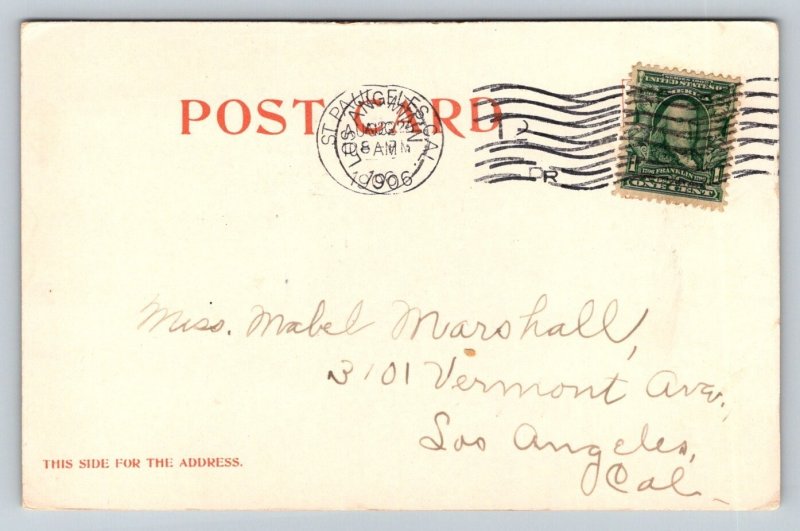 POST CARD
ST. PAUL
LOS ANGELES, CAL.
1906
UNITED STATES OF
AMERICA
FRANKLIN
1 ONE CENT 1
Miss. Mabel Marshall,
3101 Vermont Ave.,
Los Angeles,
Cal.
THIS SIDE FOR THE ADDRESS.